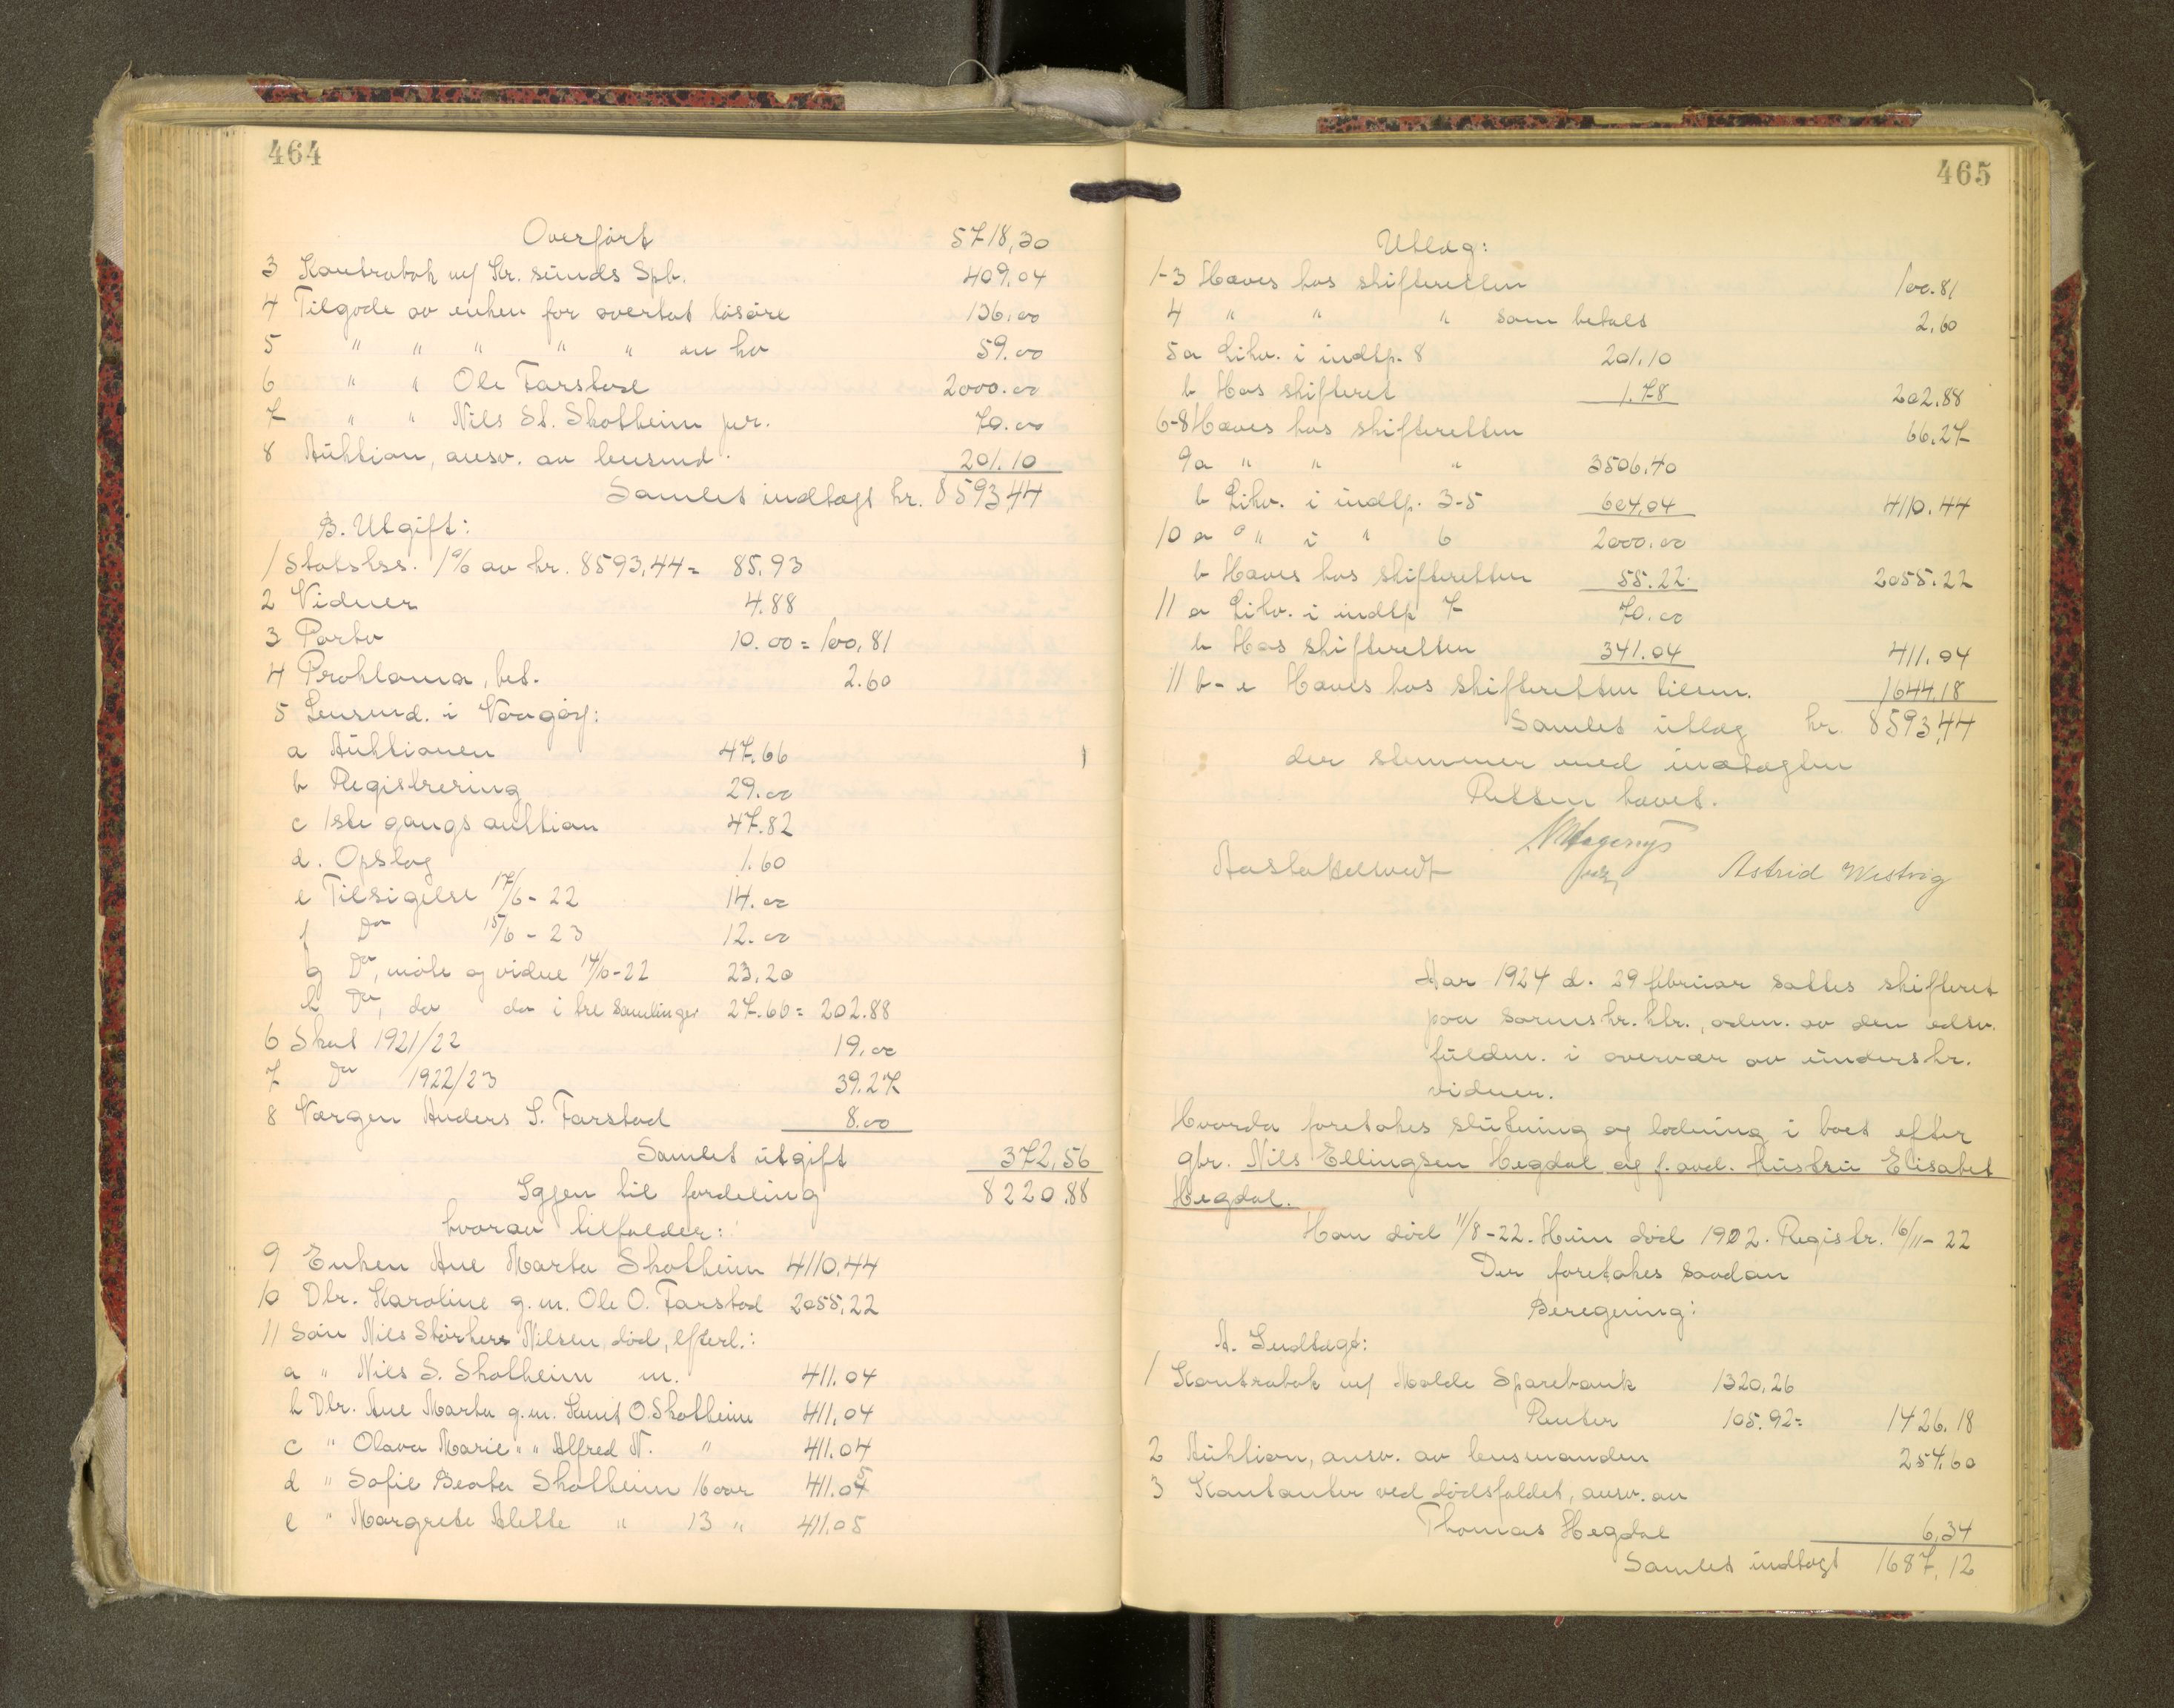 464
Overført 5718,30
3 Kontrabok m/ Kr. sunds Spb. 409.04
4 Tilgode av enken for overtat løsøre 136.00
5 " " " " " en ko 59.00
6 " " Ole Farstad 2000.00
7 " " Nils St. Skotheim jur. 70.00
8 Auktion, ansv. av lensmd. 201.10
Samlet indtægt kr. 8593,44
B. Utgift:
1 Statskss. 1% av kr. 8593,44 = 85.93
2 Vidner 4.88
3 Porto 10.00 = 100,81
4 Proklama, bet. 2.60
5 Lensmd. i Vaagøy:
a Auktionen 47.66
b Registrering 29.00
c 1ste gangs auktion 47.82
d. Opslag 1.60
e Tilsigelse 17/6 - 22 14.00
f Do 15/6 - 23 12.00
g Do, møte og vidne 14/10-22 23.20
h Do, do do i tre samlinger 27.60 = 202.88
6 Skat 1921/22 19.00
7 Do 1922/23 39.27
8 Værgen Anders S. Farstad 8.00
Samlet utgift 372,56
Igjen til fordeling 8220.88
hvorav tilfalder:
9 Enken Ane Marta Skotheim 4110.44
10 Dtr. Karoline g.m. Ole O. Farstad 2055,22
11 Søn Nils Størker Nilsen, død, efterl.:
a " Nils S. Skotheim m. 411.04
b Dtr. Ane Marta g.m. Knut O. Skotheim 411.04
c " Olava Marie " " Alfred N. " 411.04
d " Sofie Beata Skotheim 16 aar 411.05
e " Margrete Alette " 13 " 411.05
465
Utlæg:
1-3 Haves hos skifteretten 100.81
4 " " " som betalt 2,60
5a Likv. i indtp. 8 201.10
b Hos skifteret 1.78 202.88
6-8 Haves hos skifteretten 66.27
9a " " " 3506.40
b Likv. i indtp. 3-5 604,04 4110.44
10 a " i " 6 2000.00
b Haves hos skifteretten 55.22 2055.22
11 a Likv. i indtp 7 70.00
b Hos skifteretten 341.04 411.04
11 b-e Haves hos skifteretten tilsm. 1644.18
Samlet utlæg kr. 8593,44
der stemmer med indtægten
Retten hævet.
Astrid Westvig
Aar 1924 d. 29 februar sattes skifteret
paa sornskr.ktr., adm. av den edsv.
fuldm. i overvær av underskr.
vidner.
Hvorda foretokes slutning og lodning i boet efter
gbr. Nils Ellingsen Hegdal og f. avd. hustru Elisabet
Hegdal.
Han død 11/8-22. Hun død 1902. Registr. 16/11-22
Der foretokes saadan
Beregning:
A. Indtægt:
1 Kontrabok m/ Molde Sparebank 1320,26
Renter 105.92 = 1426.18
2 Auktion, ansv. av lensmanden 254.60
3 Kontanter ved dødsfaldet, ansv. av
Thomas Hegdal 6,34
Samlet indtægt 1687,12